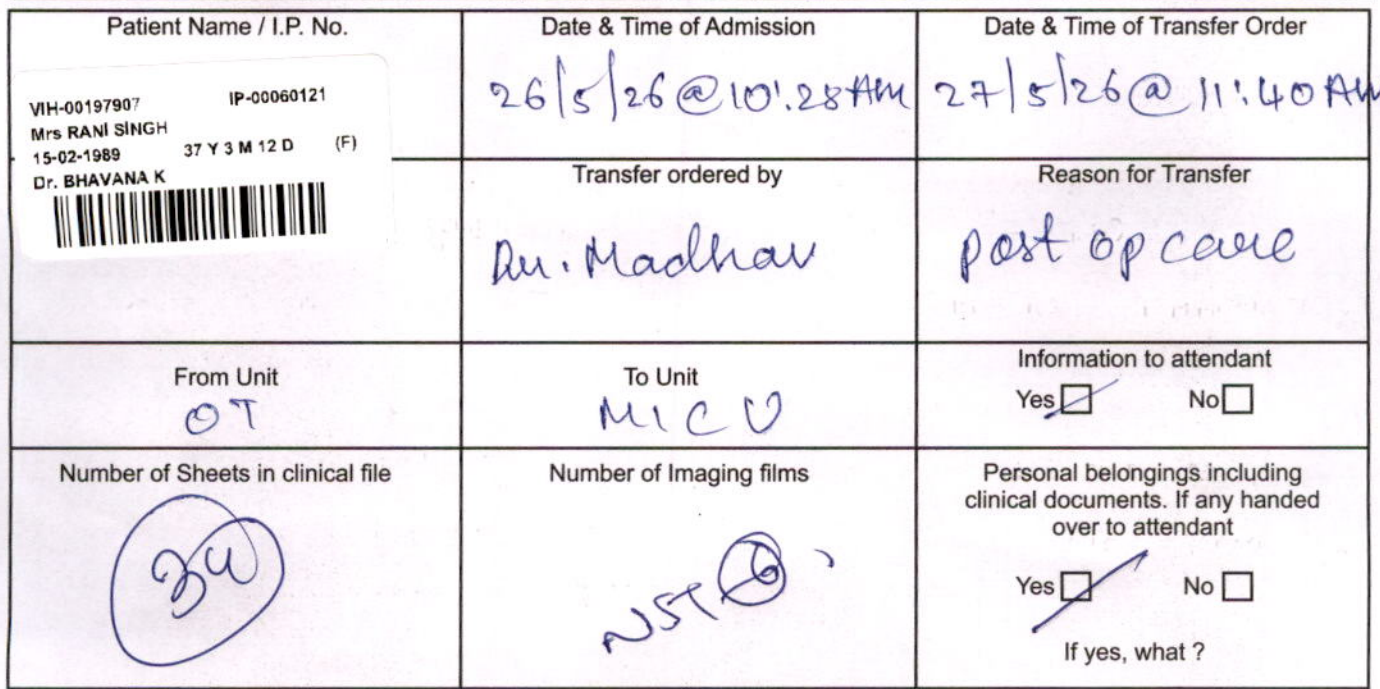 Patient Name / I.P. No.
VIH-00197907 IP-00060121
Mrs RANI SINGH
15-02-1989 37 Y 3 M 12 D (F)
Dr. BHAVANA K
Date & Time of Admission
26/5/26 @ 10:28 AM
Date & Time of Transfer Order
27/5/26 @ 11:40 AM
Transfer ordered by
Dr. Madhav
Reason for Transfer
post op care
From Unit
OT
To Unit
MICU
Information to attendant
Yes No
Number of Sheets in clinical file
Number of Imaging films
NST
Personal belongings including
clinical documents. If any handed
over to attendant
Yes No
If yes, what ?